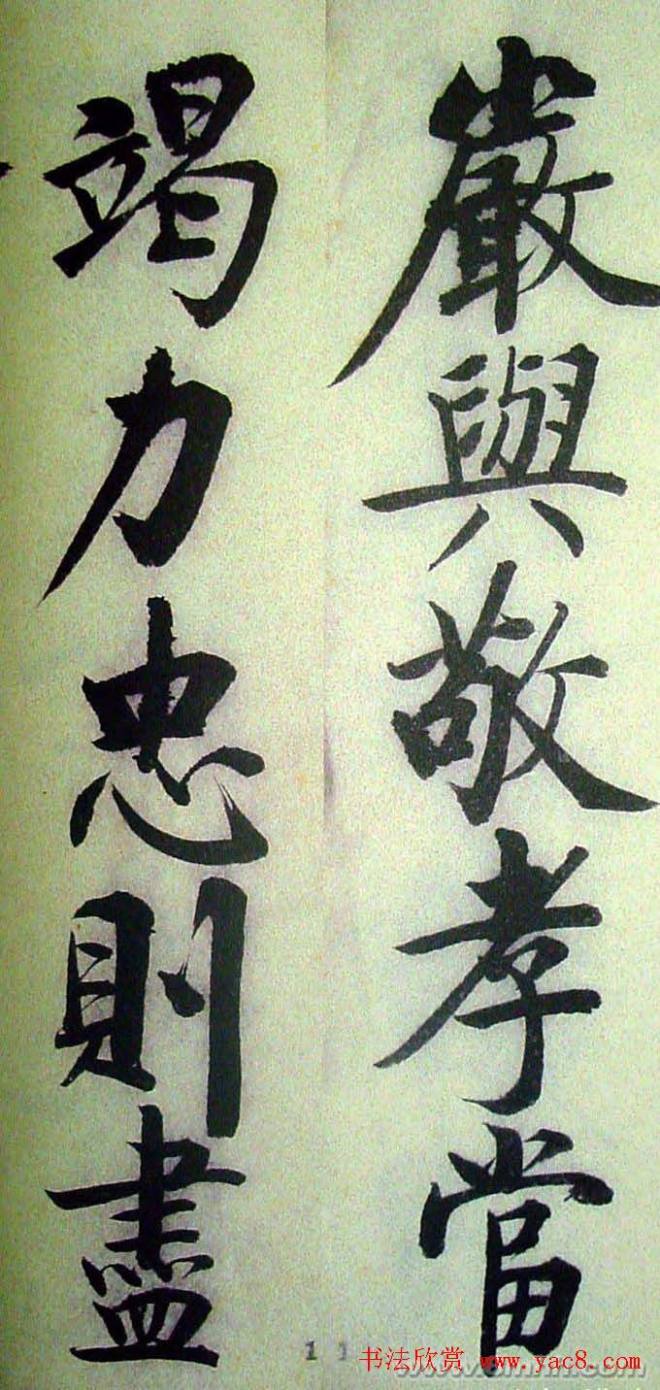 嚴與敬孝當
竭力忠則盡
11
书法欣赏 www.yac8.com